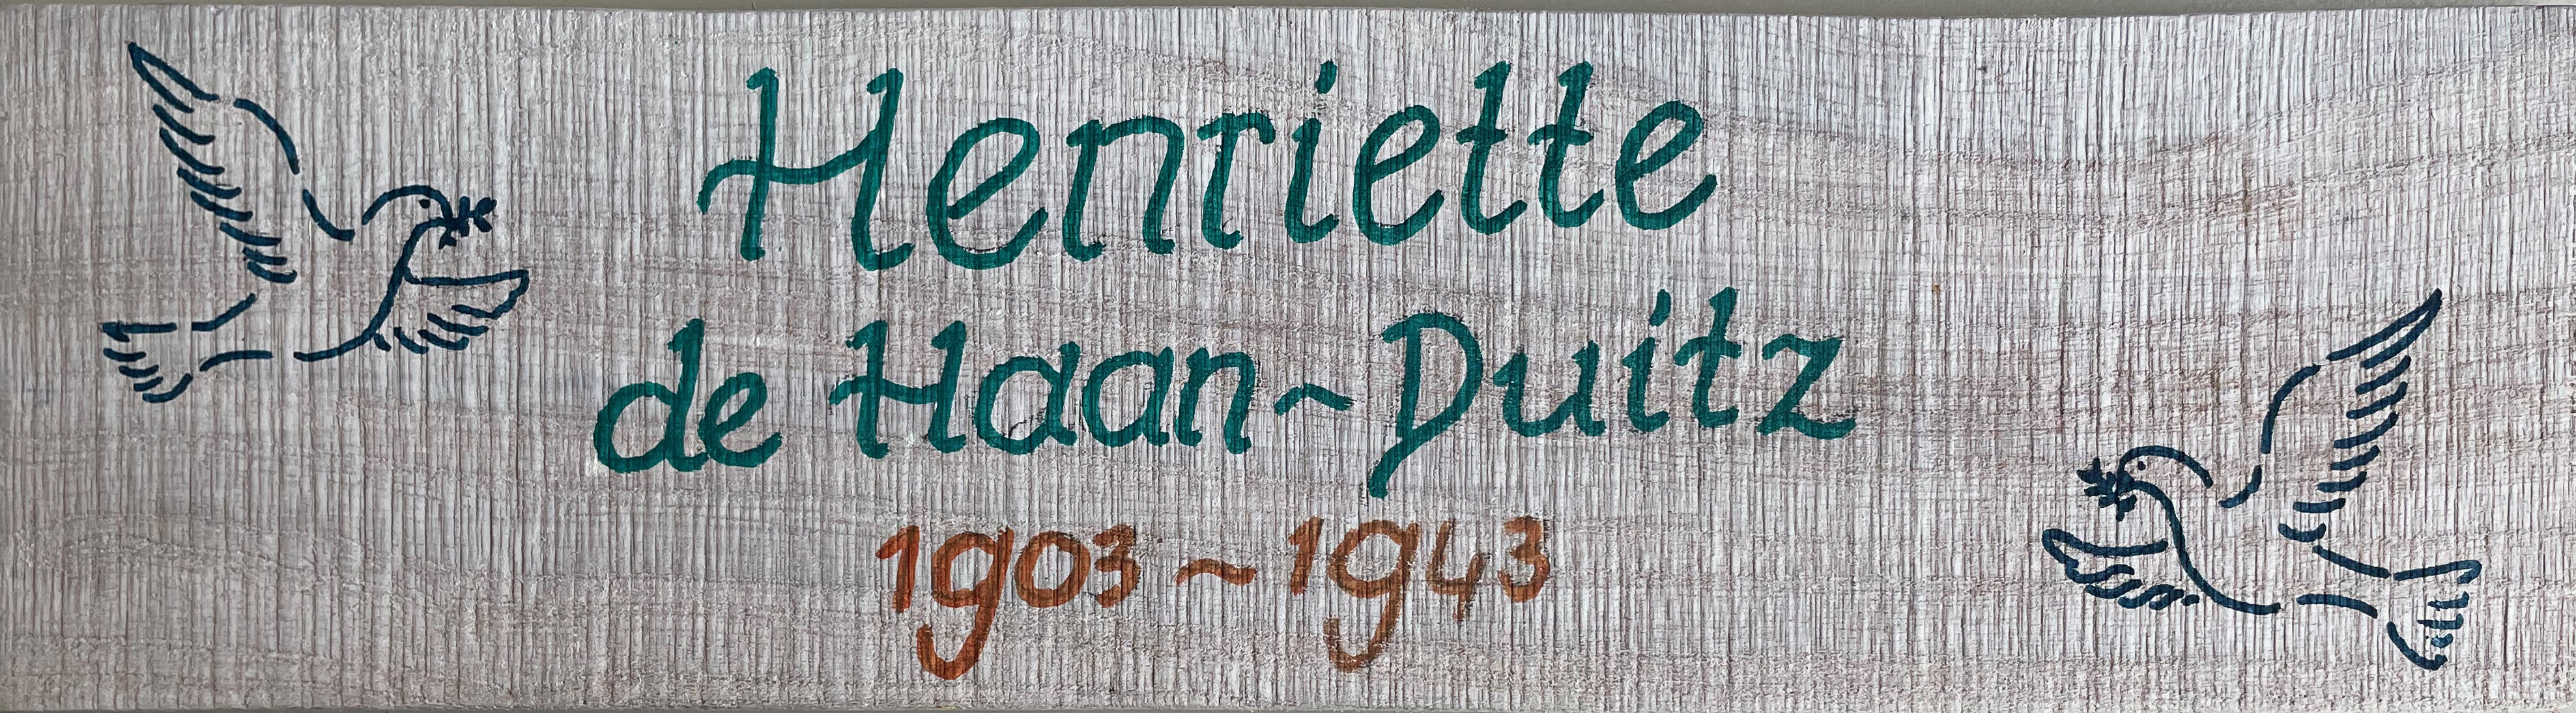 Henriette
de Haan~Duitz
1903~1943